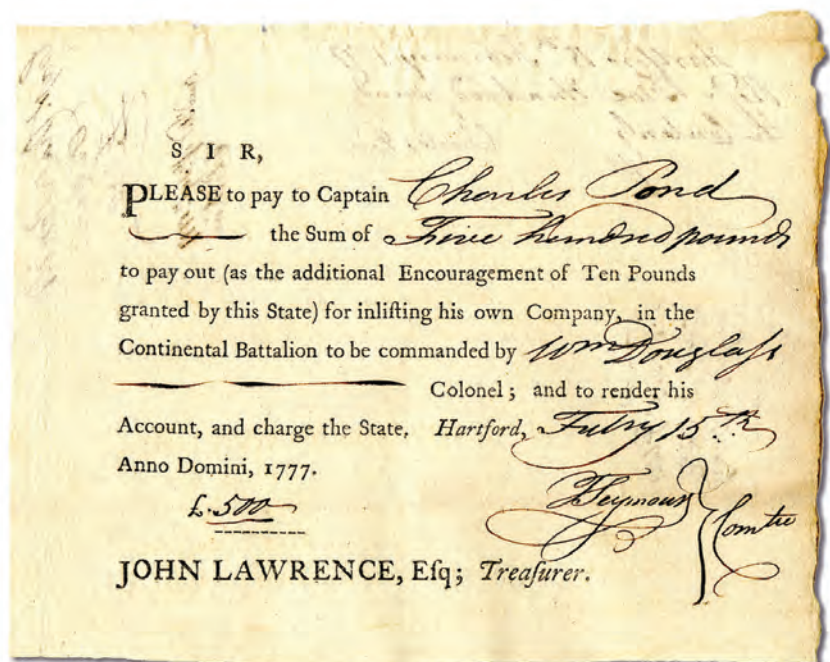 S I R,
PLEASE to pay to Captain Charles Pond
the Sum of Five hundred pounds
to pay out (as the additional Encouragement of Ten Pounds
granted by this State) for inliſting his own Company, in the
Continental Battalion to be commanded by Wm Douglaſs
Colonel; and to render his
Account, and charge the State. Hartford, Febry 15th
Anno Domini, 1777.
£.500
TSeymour } Comtee
JOHN LAWRENCE, Eſq; Treaſurer.